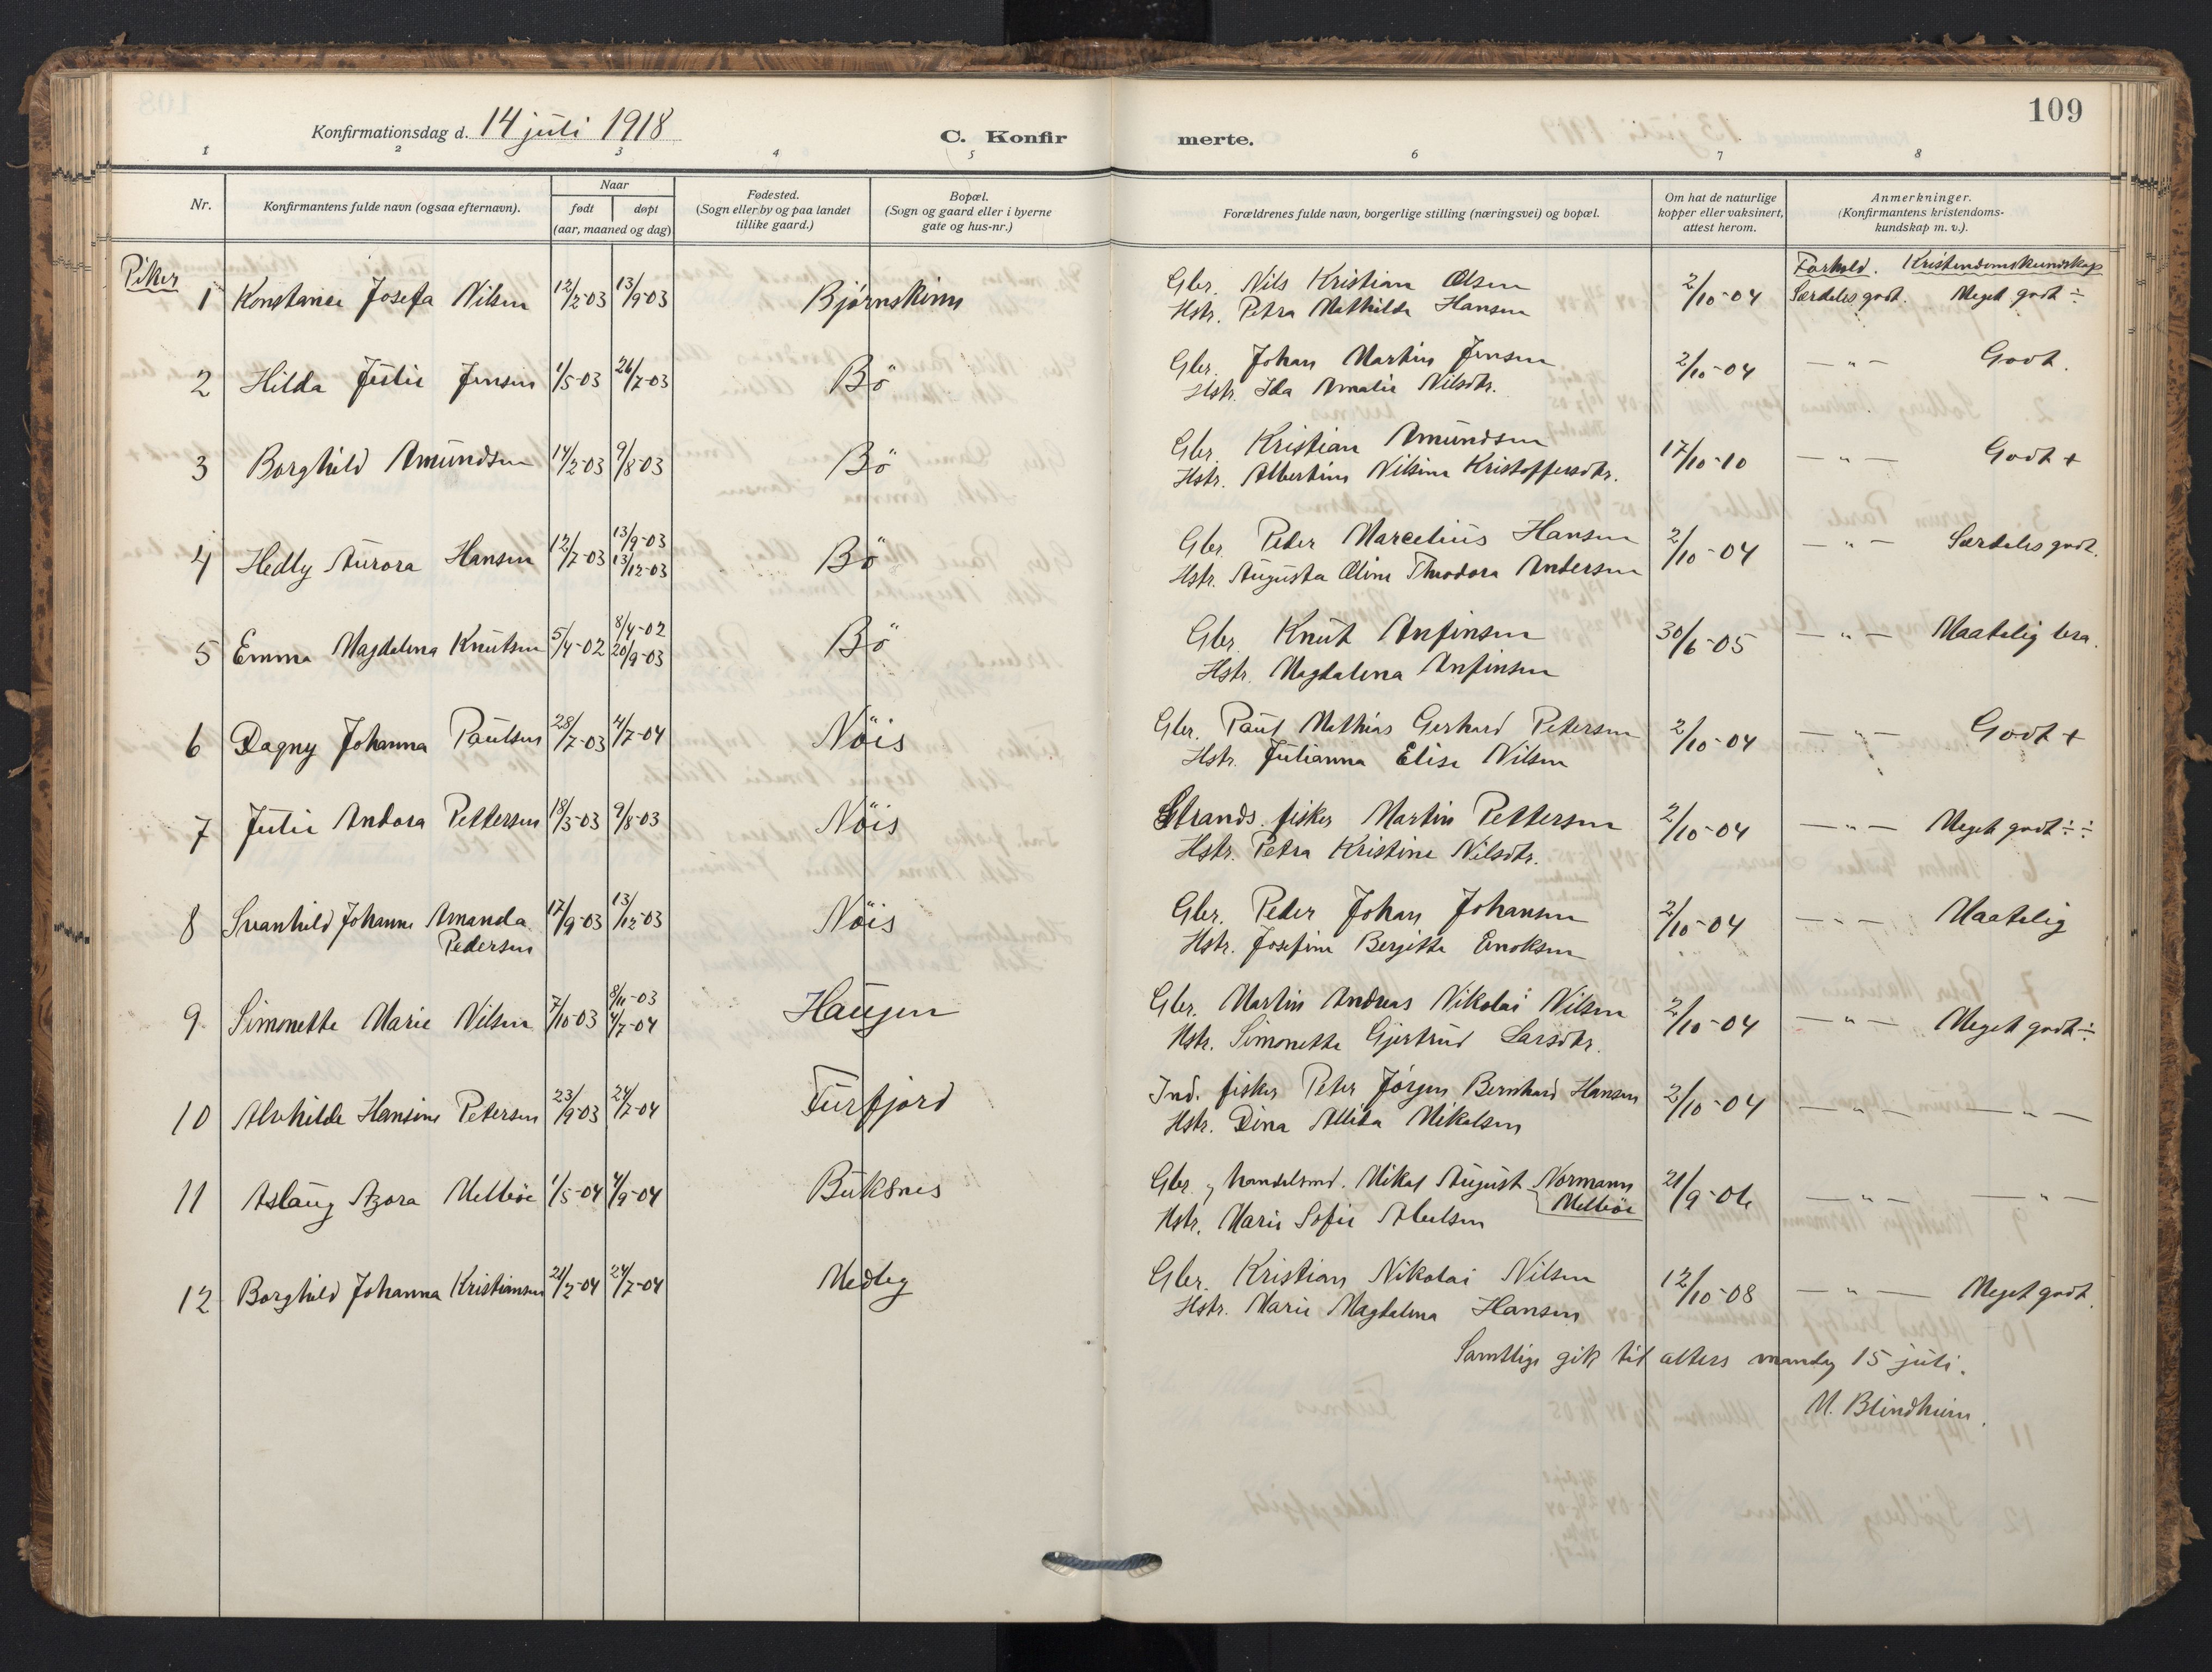 109
Konfirmationsdag d. 14 juli 1918
C. Konfirmerte.
1 2 3 4 5 6 7 8
Nr.
Konfirmantens fulde navn (ogsaa efternavn).
Naar
født døpt
(aar, maaned og dag)
Fødested.
(Sogn eller by og paa landet
tillike gaard.)
Bopæl.
(Sogn og gaard eller i byerne
gate og hus-nr.)
Forældrenes fulde navn, borgerlige stilling (næringsvei) og bopæl.
Om hat de naturlige
kopper eller vaksinert,
attest herom.
Anmerkninger.
(Konfirmantens kristendoms-
kundskap m. v.).
Piker
Forhold. Kristendomskundskap
1 Konstance Josefa Nilsen 12/2-03 13/9-03 Bjørnskinn Gbr. Nils Kristian Olsen 2/10-04 Særdeles godt. Meget godt ÷
Hstr. Petra Mathilde Hansen
2 Hilda Julie Jensen 1/5-03 26/7-03 Bö Gbr. Johan Martin Jensen 2/10-04 — " — Godt.
Hstr. Ida Amalie Nilsdtr.
3 Borghild Amundsen 14/2-03 9/8-03 Bö Gbr. Kristian Amundsen 17/10-10 — " — Godt +
Hstr. Albertine Nilsine Kristoffersdtr.
4 Hedly Aurora Hansen 12/7-03 13/9-03 13/12-03 Bö Gbr. Peder Marcelius Hansen 2/10-04 — " — Særdeles godt.
Hstr. Augusta Oline Theodora Andersen
5 Emma Magdalena Knutsen 5/4-02 8/4-02 20/9-03 Bö Gbr. Knut Anfinsen 30/6-05 — " — Maatelig bra.
Hstr. Magdalena Anfinsen
6 Dagny Johanna Paulsen 28/7-03 4/7-04 Nöis Gbr. Paul Mathias Gerhard Petersen 2/10-04 — " — Godt +
Hstr. Julianna Elise Nilsen
7 Julie Andora Pettersen 18/3-03 9/8-03 Nöis Strands. fisker Martin Pettersen 2/10-04 — " — Meget godt ÷÷
Hstr. Petra Kristine Nilsdtr.
8 Svanhild Johanne Amanda 17/9-03 13/12-03 Nöis Gbr. Peder Johan Johansen 2/10-04 — " — Maatelig
Pedersen Hstr. Josefine Bergitte Enoksen
9 Simonette Marie Nilsen 7/10-03 8/11-03 4/7-04 Haugen Gbr. Martin Andreas Nikolai Nilsen 2/10-04 — " — Meget godt ÷
Hstr. Simonette Gjertrud Larsdtr.
10 Alvhilde Hansine Petersen 23/9-03 24/7-04 Turfjord Ind. fisker Peter Jörgen Bernhard Hansen 2/10-04 — " — — " —
Hstr. Dina Alida Mikalsen
11 Aslaug Azora Melböe 1/5-04 4/9-04 Buksnes Gbr. og handelsmd. Mikal August Normann 21/9-06 — " — — " —
Melböe
Hstr. Marie Sofie Abelsen
12 Borghild Johanna Kristiansen 21/2-04 24/7-04 Medby Gbr. Kristian Nikolai Nilsen 12/10-08 — " — Meget godt.
Hstr. Marie Magdalena Hansen
Samtlige gik til alters mandag 15 juli.
M. Blindheim.